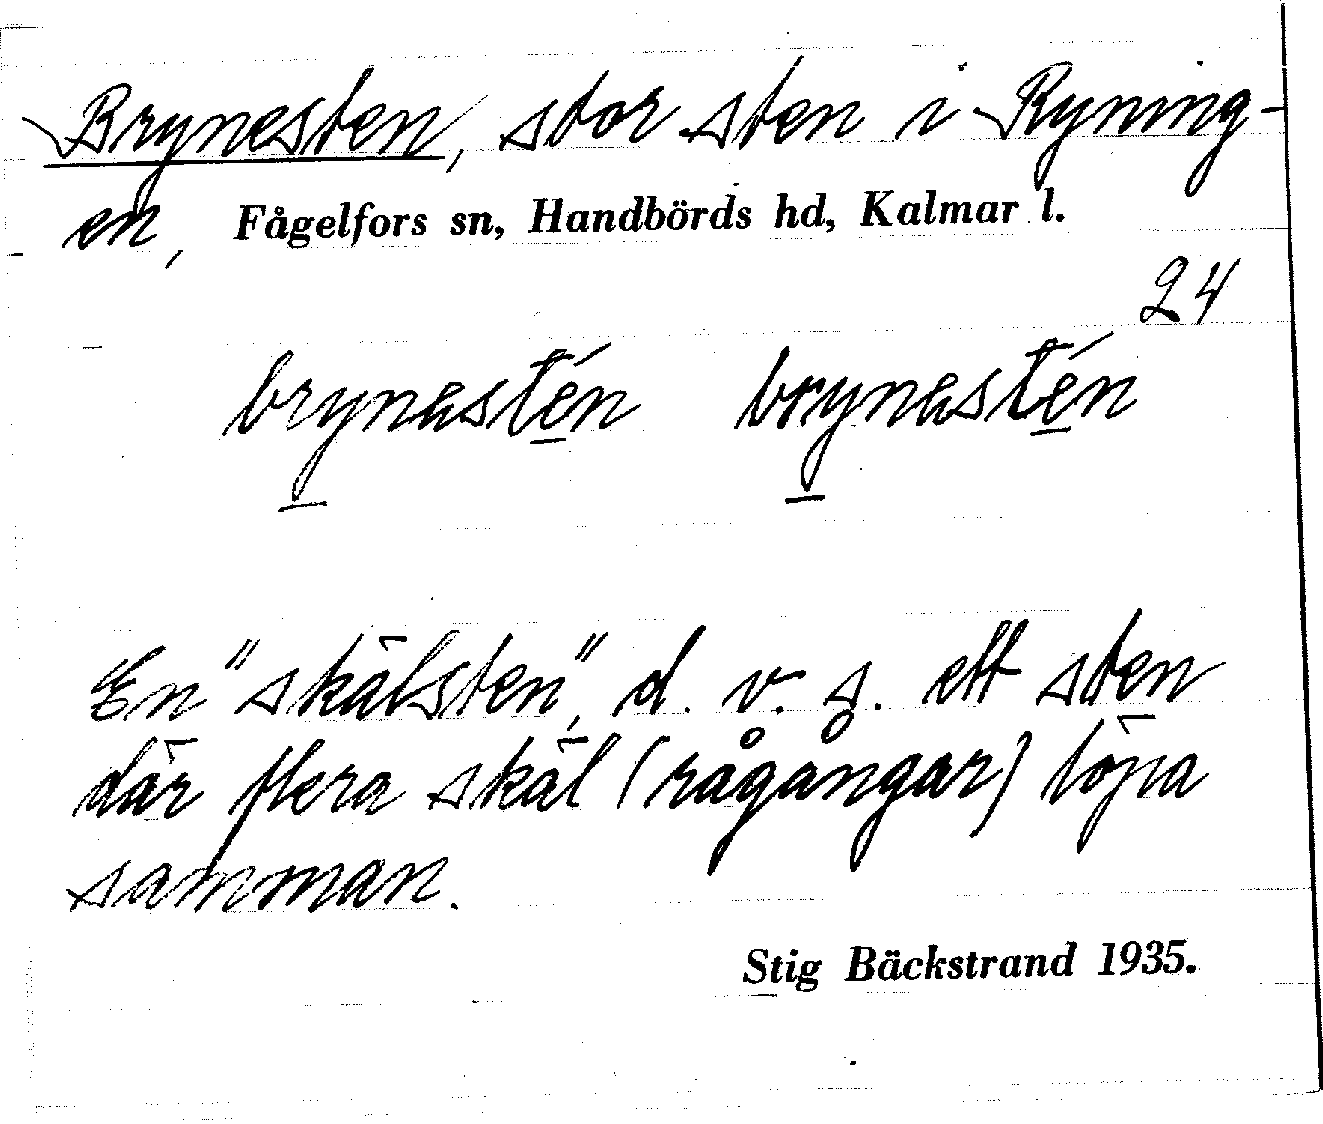 Brynesten, stor sten i Ryning-
en, Fågelfors sn, Handbörds hd, Kalmar l.
24
brynestén brynestén
En "skälsten", d. v. s. ett sten
där flera skäl (rågångar) löpa
samman.
Stig Bäckstrand 1935.